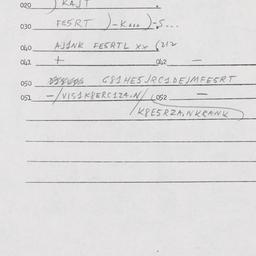 020 ) KAJT
030 FESRT )-K... )-S...
040 AJ1NK FESRTL xx (212
041 + 042 —
050 G81HES/RC1DE/MFESRT
051 —/VIS1K8ERC1ZA.N/ 052 —
/K8E5RZA.NKRANK)